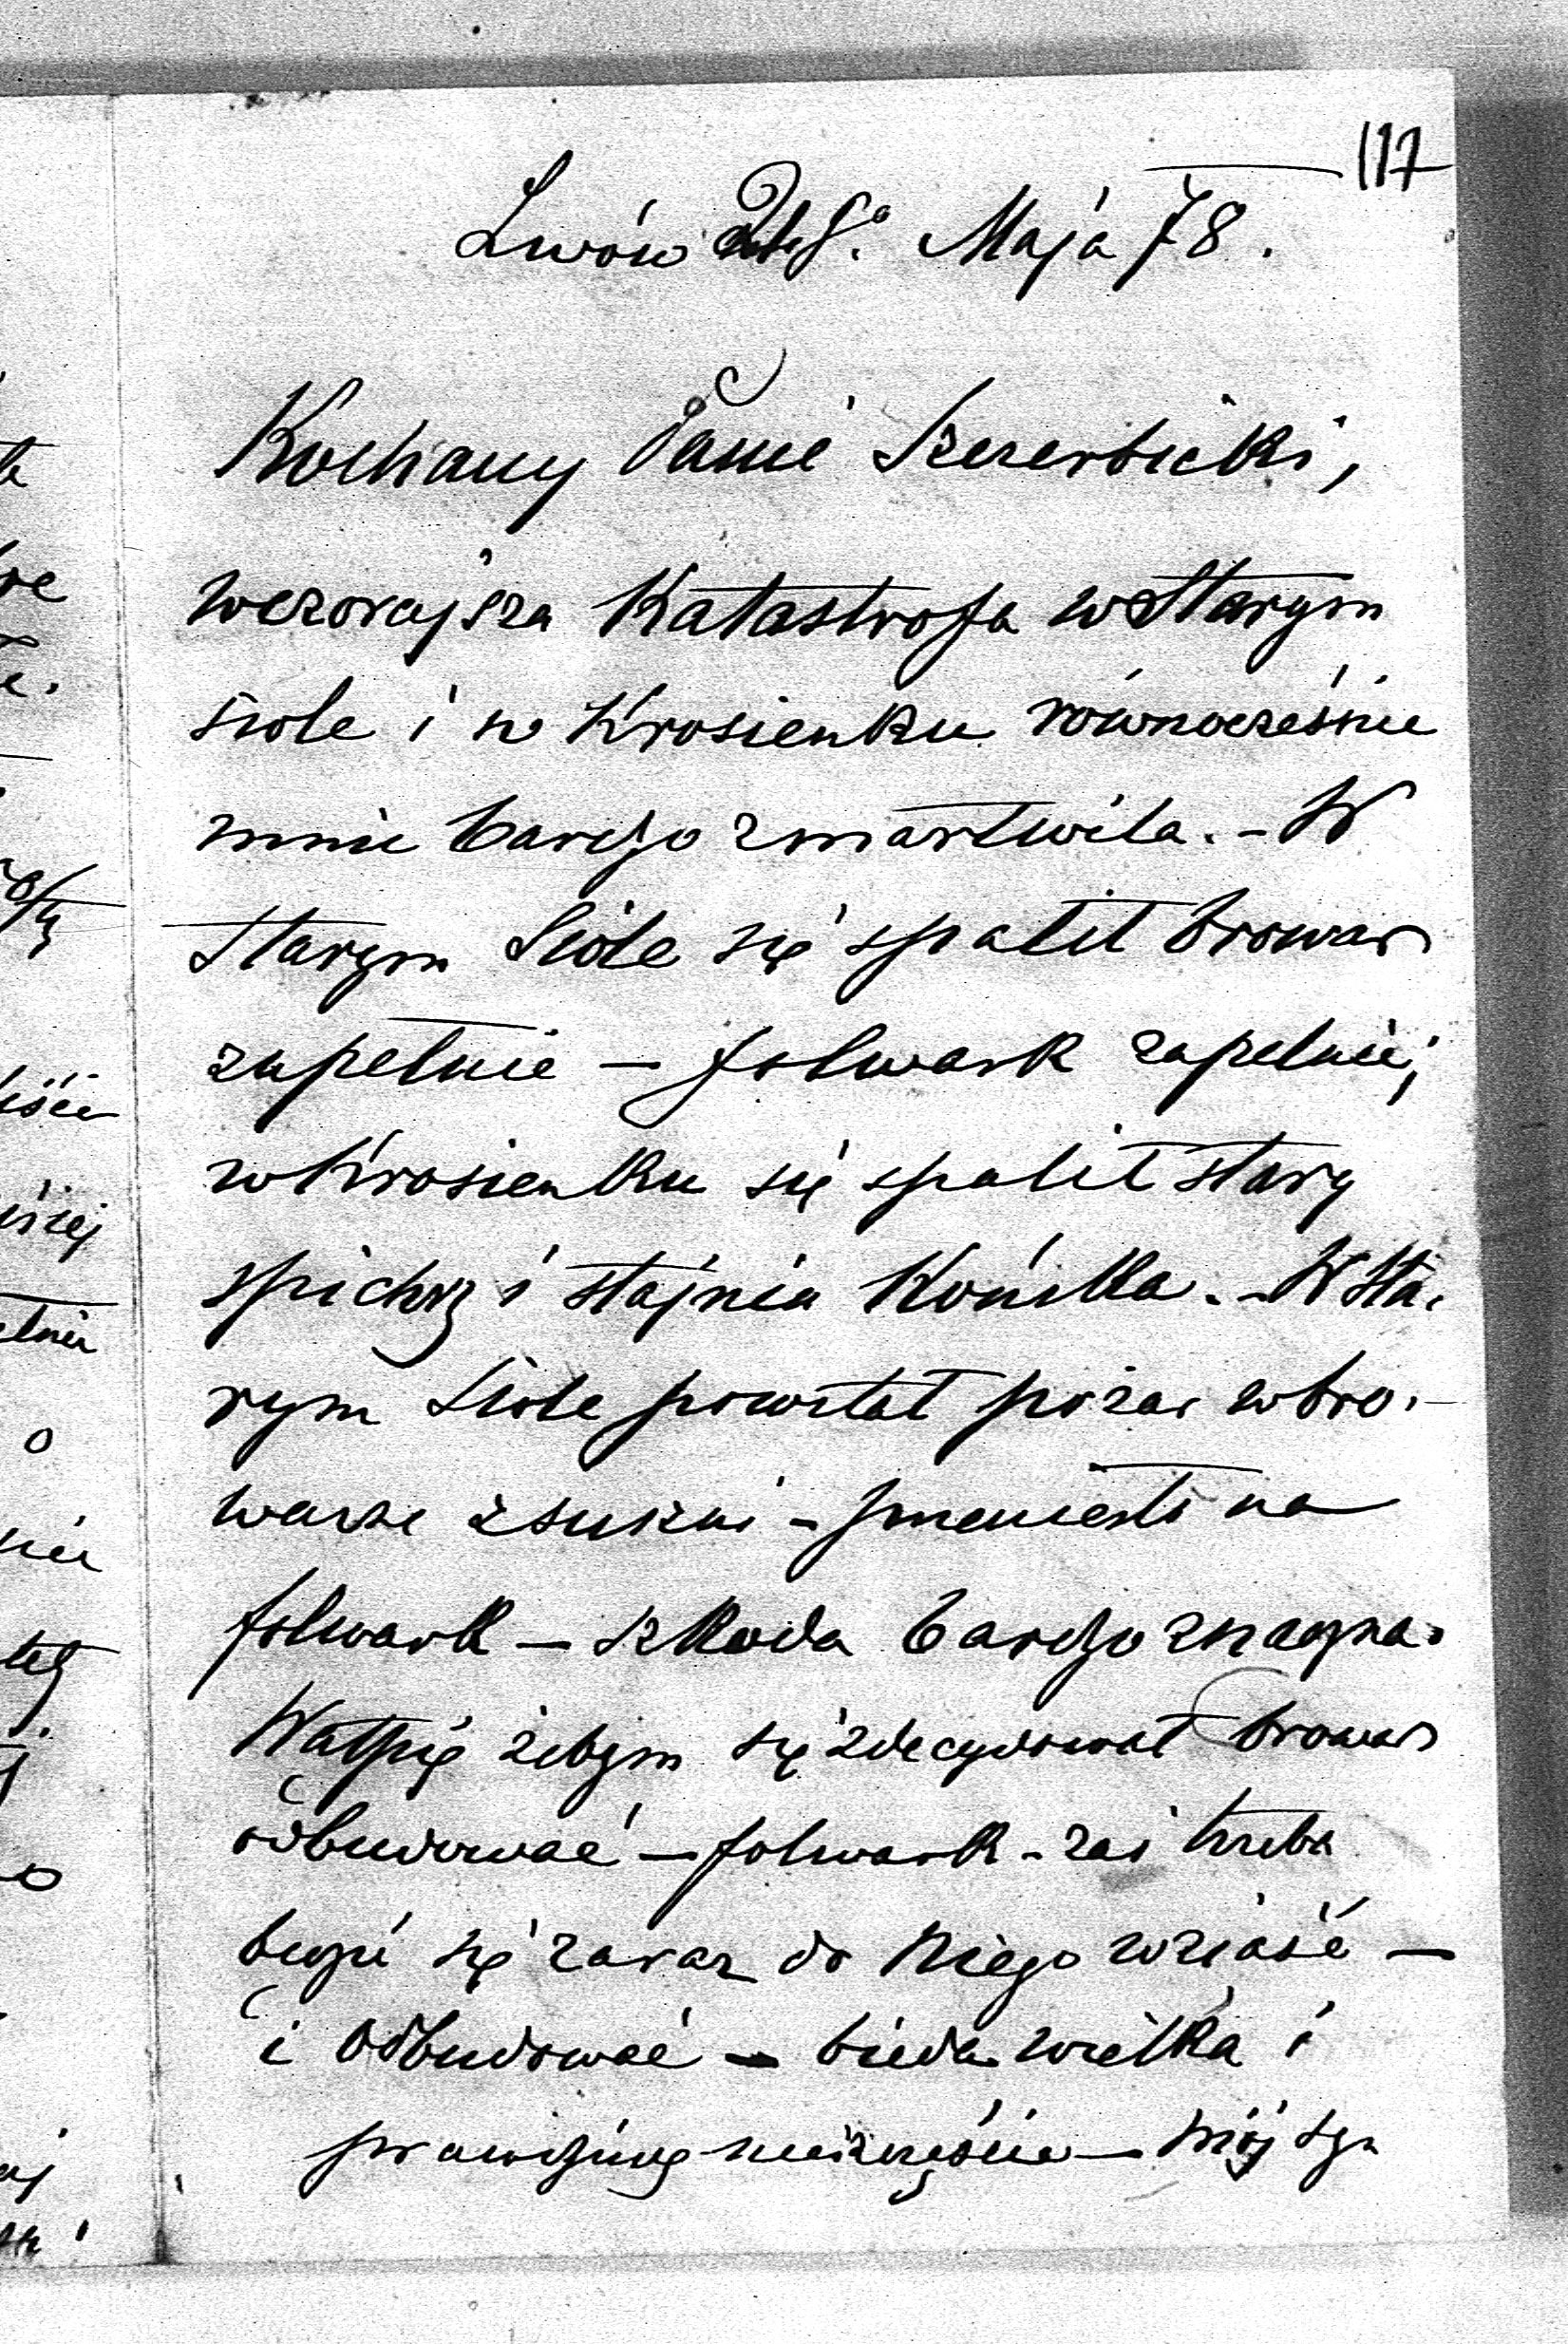 117
Lwów Maja 78.
Kochany Panie Szczerbicki,
wczorajsza Katastrofa w Starym
siole i w Krosienku równocześnie
mnie bardzo zmartwiła. - W
Starym Siole się spalił browar
zupełnie — folwark zupełnie;
w Krosienku się spalił stary
spichrz i stajnia Końska. - W Sta-
rym Siole powstał pożar w bro-
warze z suszni - przeniósł na
folwark — szkoda bardzo znaczna.
Wątpię żebym się zdecydował browar
odbudować — folwark - zaś trzeba
będzie się zaraz do niego wziąść —
i odbudować — bieda wielka i
prawdziwe nieszczęście — mój syn